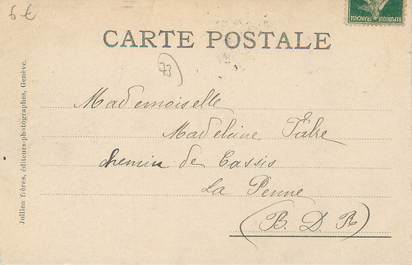 6€
CARTE POSTALE
73
Mademoiselle
Madeleine Fabre
chemin de Cassis
La Penne
(B. D. R)
Jullien frères, éditeurs-photographes, Genève.